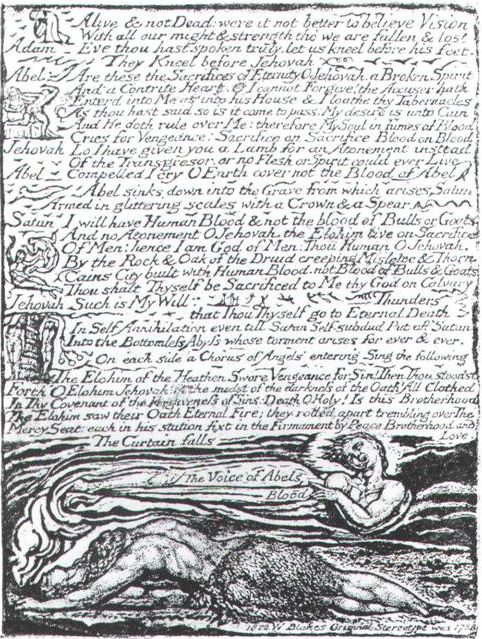 Alive & not Dead: were it not better to believe Vision
With all our might & strength tho we are fallen & lost
Adam Eve thou hast spoken truly. let us kneel before his feet.
They Kneel before Jehovah
Abel Are these the Sacrifices of Eternity O Jehovah, a Broken Spirit
And a Contrite Heart. O I cannot Forgive! the Accuser hath
Enterd into Me as into his House & I loathe thy Tabernacles
As thou hast said so is it come to pass. My desire is unto Cain
And He doth rule over Me: therefore My Soul in fumes of Blood
Cries for Vengeance: Sacrifice on Sacrifice Blood on Blood
Jehovah Lo I have given you a Lamb for an Atonement instead
Of the Transgresor, or no Flesh or Spirit could ever Live
Abel Compelled I cry O Earth cover not the Blood of Abel
Abel sinks down into the Grave from which arises Satan
Armed in glittering scales with a Crown & a Spear
Satan I will have Human Blood & not the blood of Bulls or Goats
And no Atonement O Jehovah the Elohim live on Sacrifice
Of Men: hence I am God of Men: Thou Human O Jehovah.
By the Rock & Oak of the Druid creeping Mistletoe & Thorn
Cains City built with Human Blood, not Blood of Bulls & Goats
Thou shalt Thyself be Sacrificed to Me thy God on Calvary
Jehovah Such is My Will: Thunders
that Thou Thyself go to Eternal Death
In Self Annihilation even till Satan Self-subdud Put off Satan
Into the Bottomless Abyss whose torment arises for ever & ever.
On each side a Chorus of Angels entering Sing the following
The Elohim of the Heathen Swore Vengeance for Sin! Then Thou stoodst
Forth O Elohim Jehovah! in the midst of the darkness of the Oath! All Clothed
In Thy Covenant of the Forgiveness of Sins: Death O Holy! Is this Brotherhood
The Elohim saw their Oath Eternal Fire; they rolled apart trembling over The
Mercy Seat: each in his station fixt in the Firmament by Peace Brotherhood and Love.
The Curtain falls
The Voice of Abels
Blood
1822 W Blakes Original Stereotype was 1788